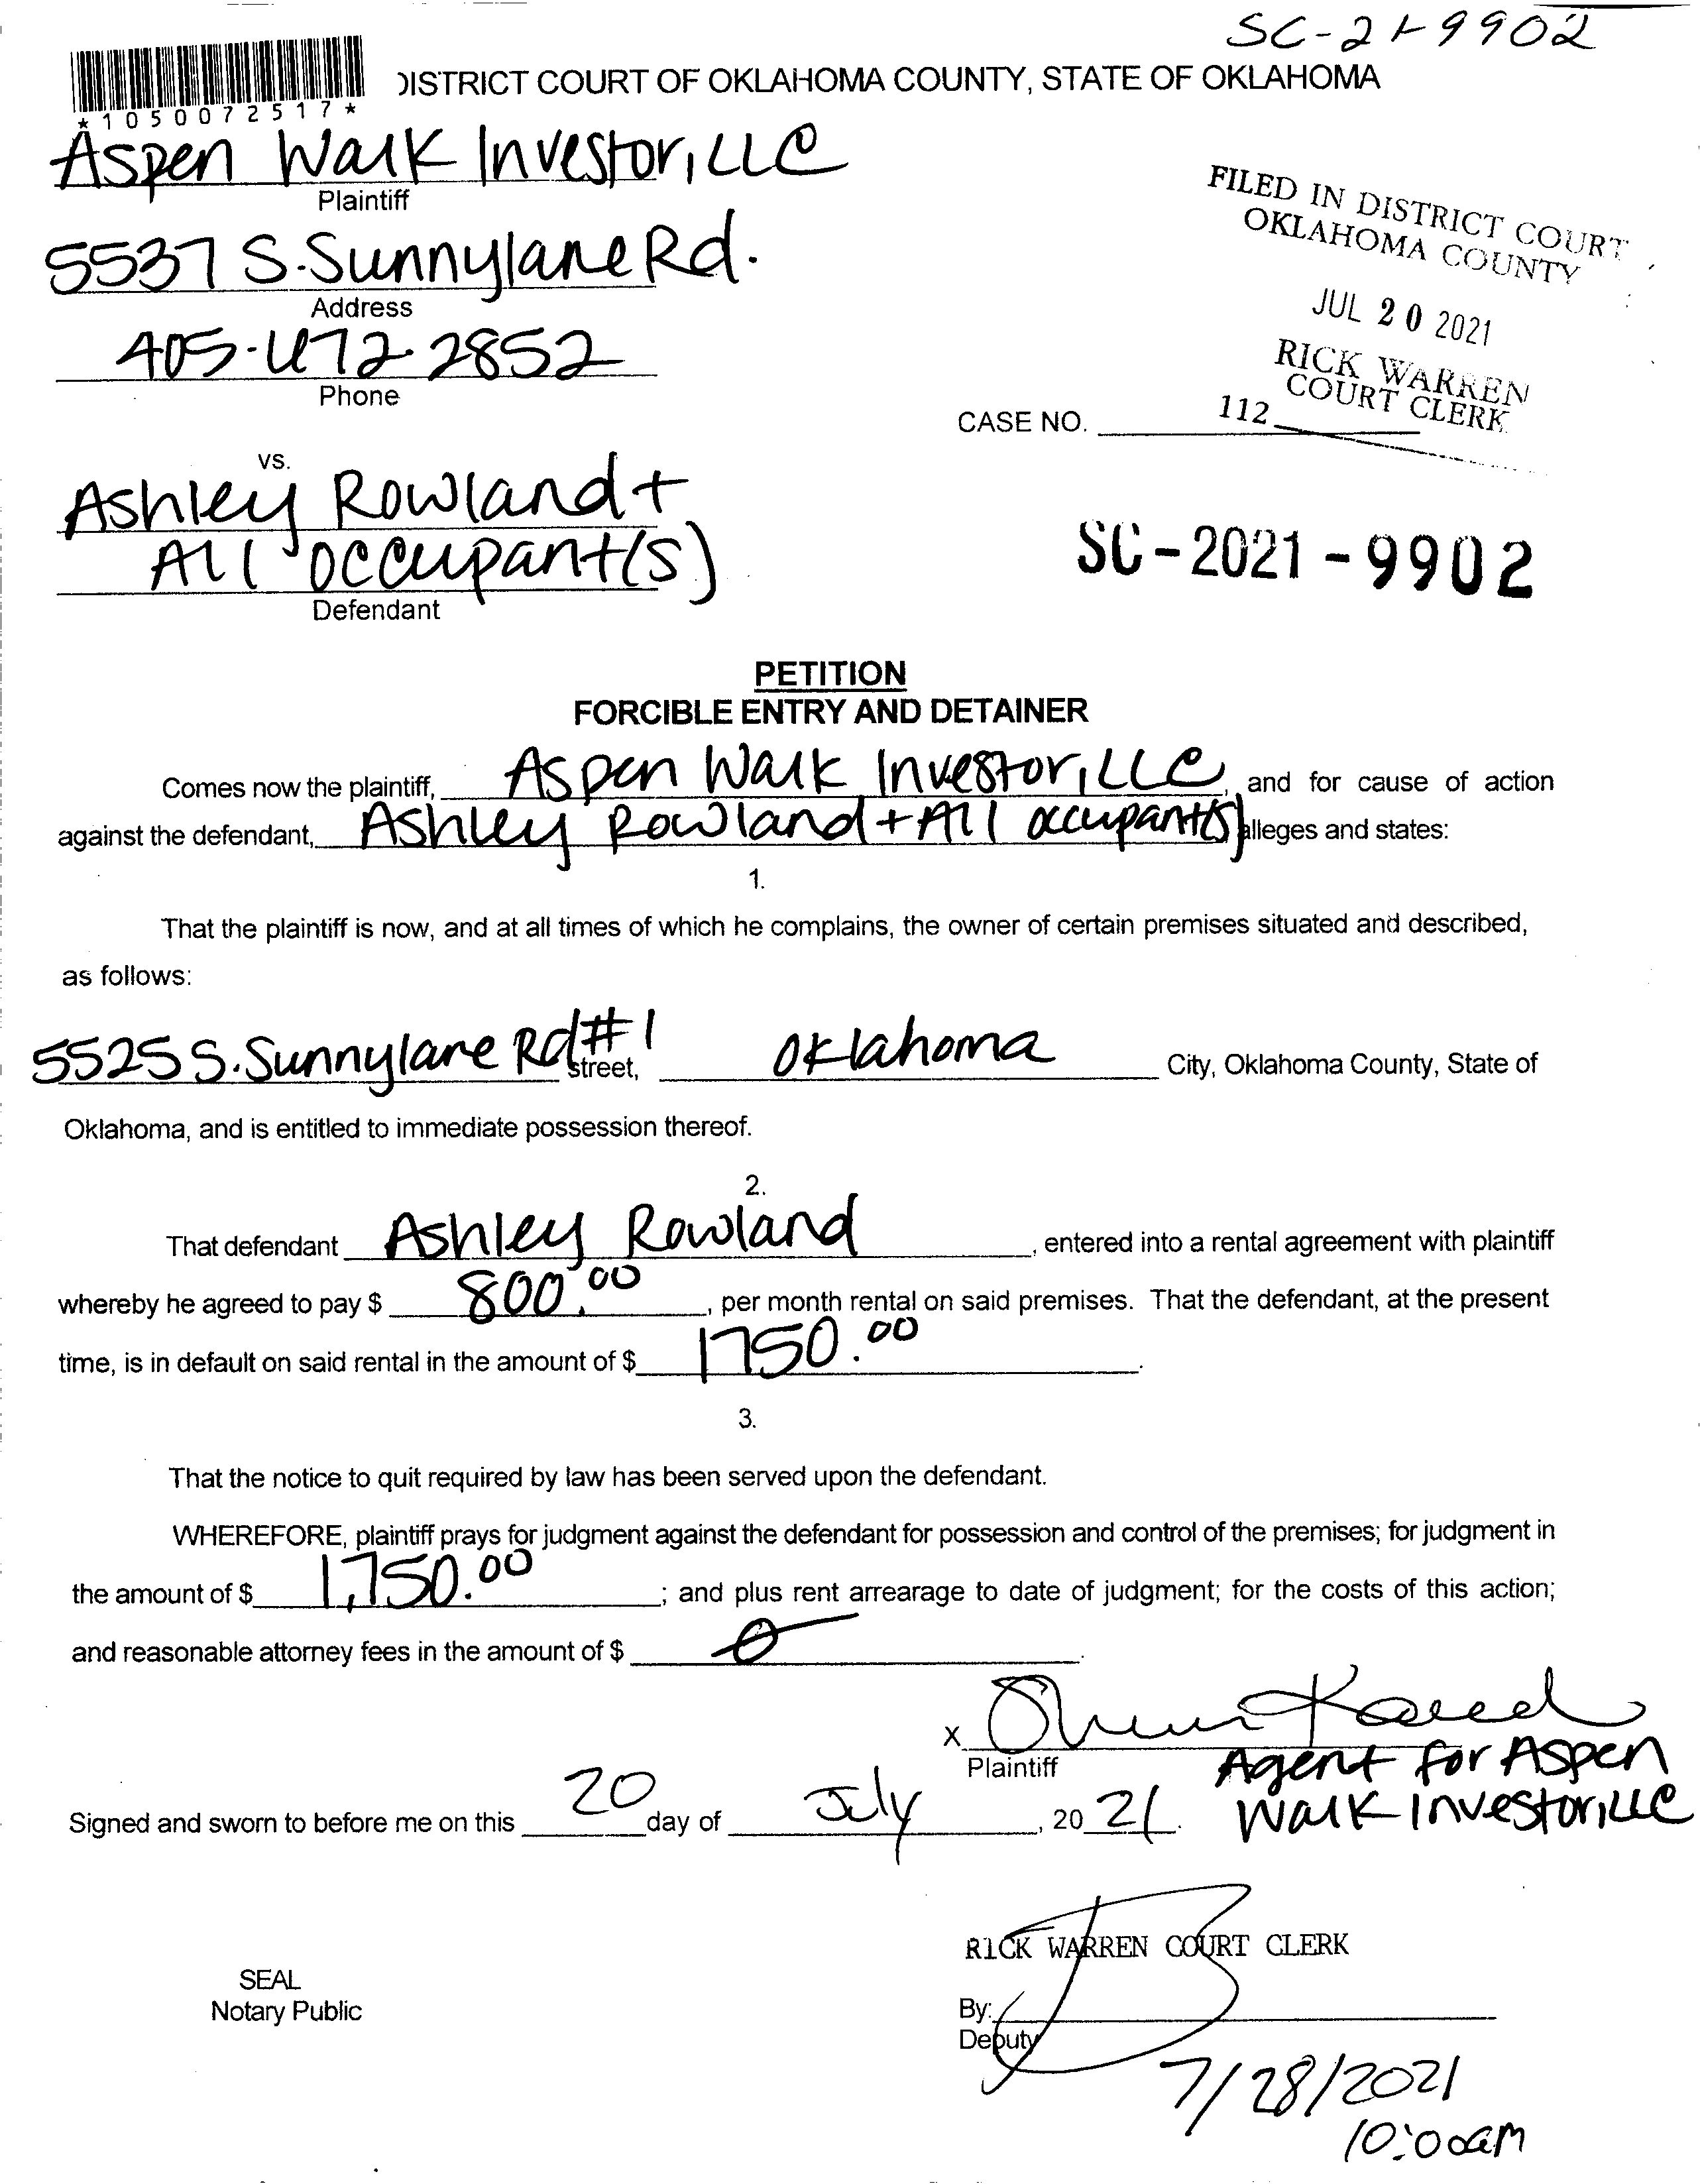 SC-21-9902
DISTRICT COURT OF OKLAHOMA COUNTY, STATE OF OKLAHOMA
*1050072517*
Aspen Walk Investor, LLC
Plaintiff
5537 S. Sunnylane Rd.
Address
405-672-2852
Phone
FILED IN DISTRICT COURT
OKLAHOMA COUNTY
JUL 20 2021
RICK WARREN
COURT CLERK
CASE NO. 112
vs.
Ashley Rowland +
All occupant(s)
Defendant
SC-2021-9902
PETITION
FORCIBLE ENTRY AND DETAINER
Comes now the plaintiff, Aspen Walk Investor, LLC, and for cause of action
against the defendant, Ashley Rowland + All occupant(s) alleges and states:
1.
That the plaintiff is now, and at all times of which he complains, the owner of certain premises situated and described,
as follows:
5525 S. Sunnylane Rd #1 street, Oklahoma City, Oklahoma County, State of
Oklahoma, and is entitled to immediate possession thereof.
2.
That defendant Ashley Rowland, entered into a rental agreement with plaintiff
whereby he agreed to pay $ 800.00, per month rental on said premises. That the defendant, at the present
time, is in default on said rental in the amount of $ 1750.00.
3.
That the notice to quit required by law has been served upon the defendant.
WHEREFORE, plaintiff prays for judgment against the defendant for possession and control of the premises; for judgment in
the amount of $ 1,750.00; and plus rent arrearage to date of judgment; for the costs of this action;
and reasonable attorney fees in the amount of $ 0.
X
Plaintiff
Agent for Aspen
Walk Investor, LLC
Signed and sworn to before me on this 20 day of July, 2021.
RICK WARREN COURT CLERK
SEAL
Notary Public
By:
Deputy
7/28/2021
10:00am